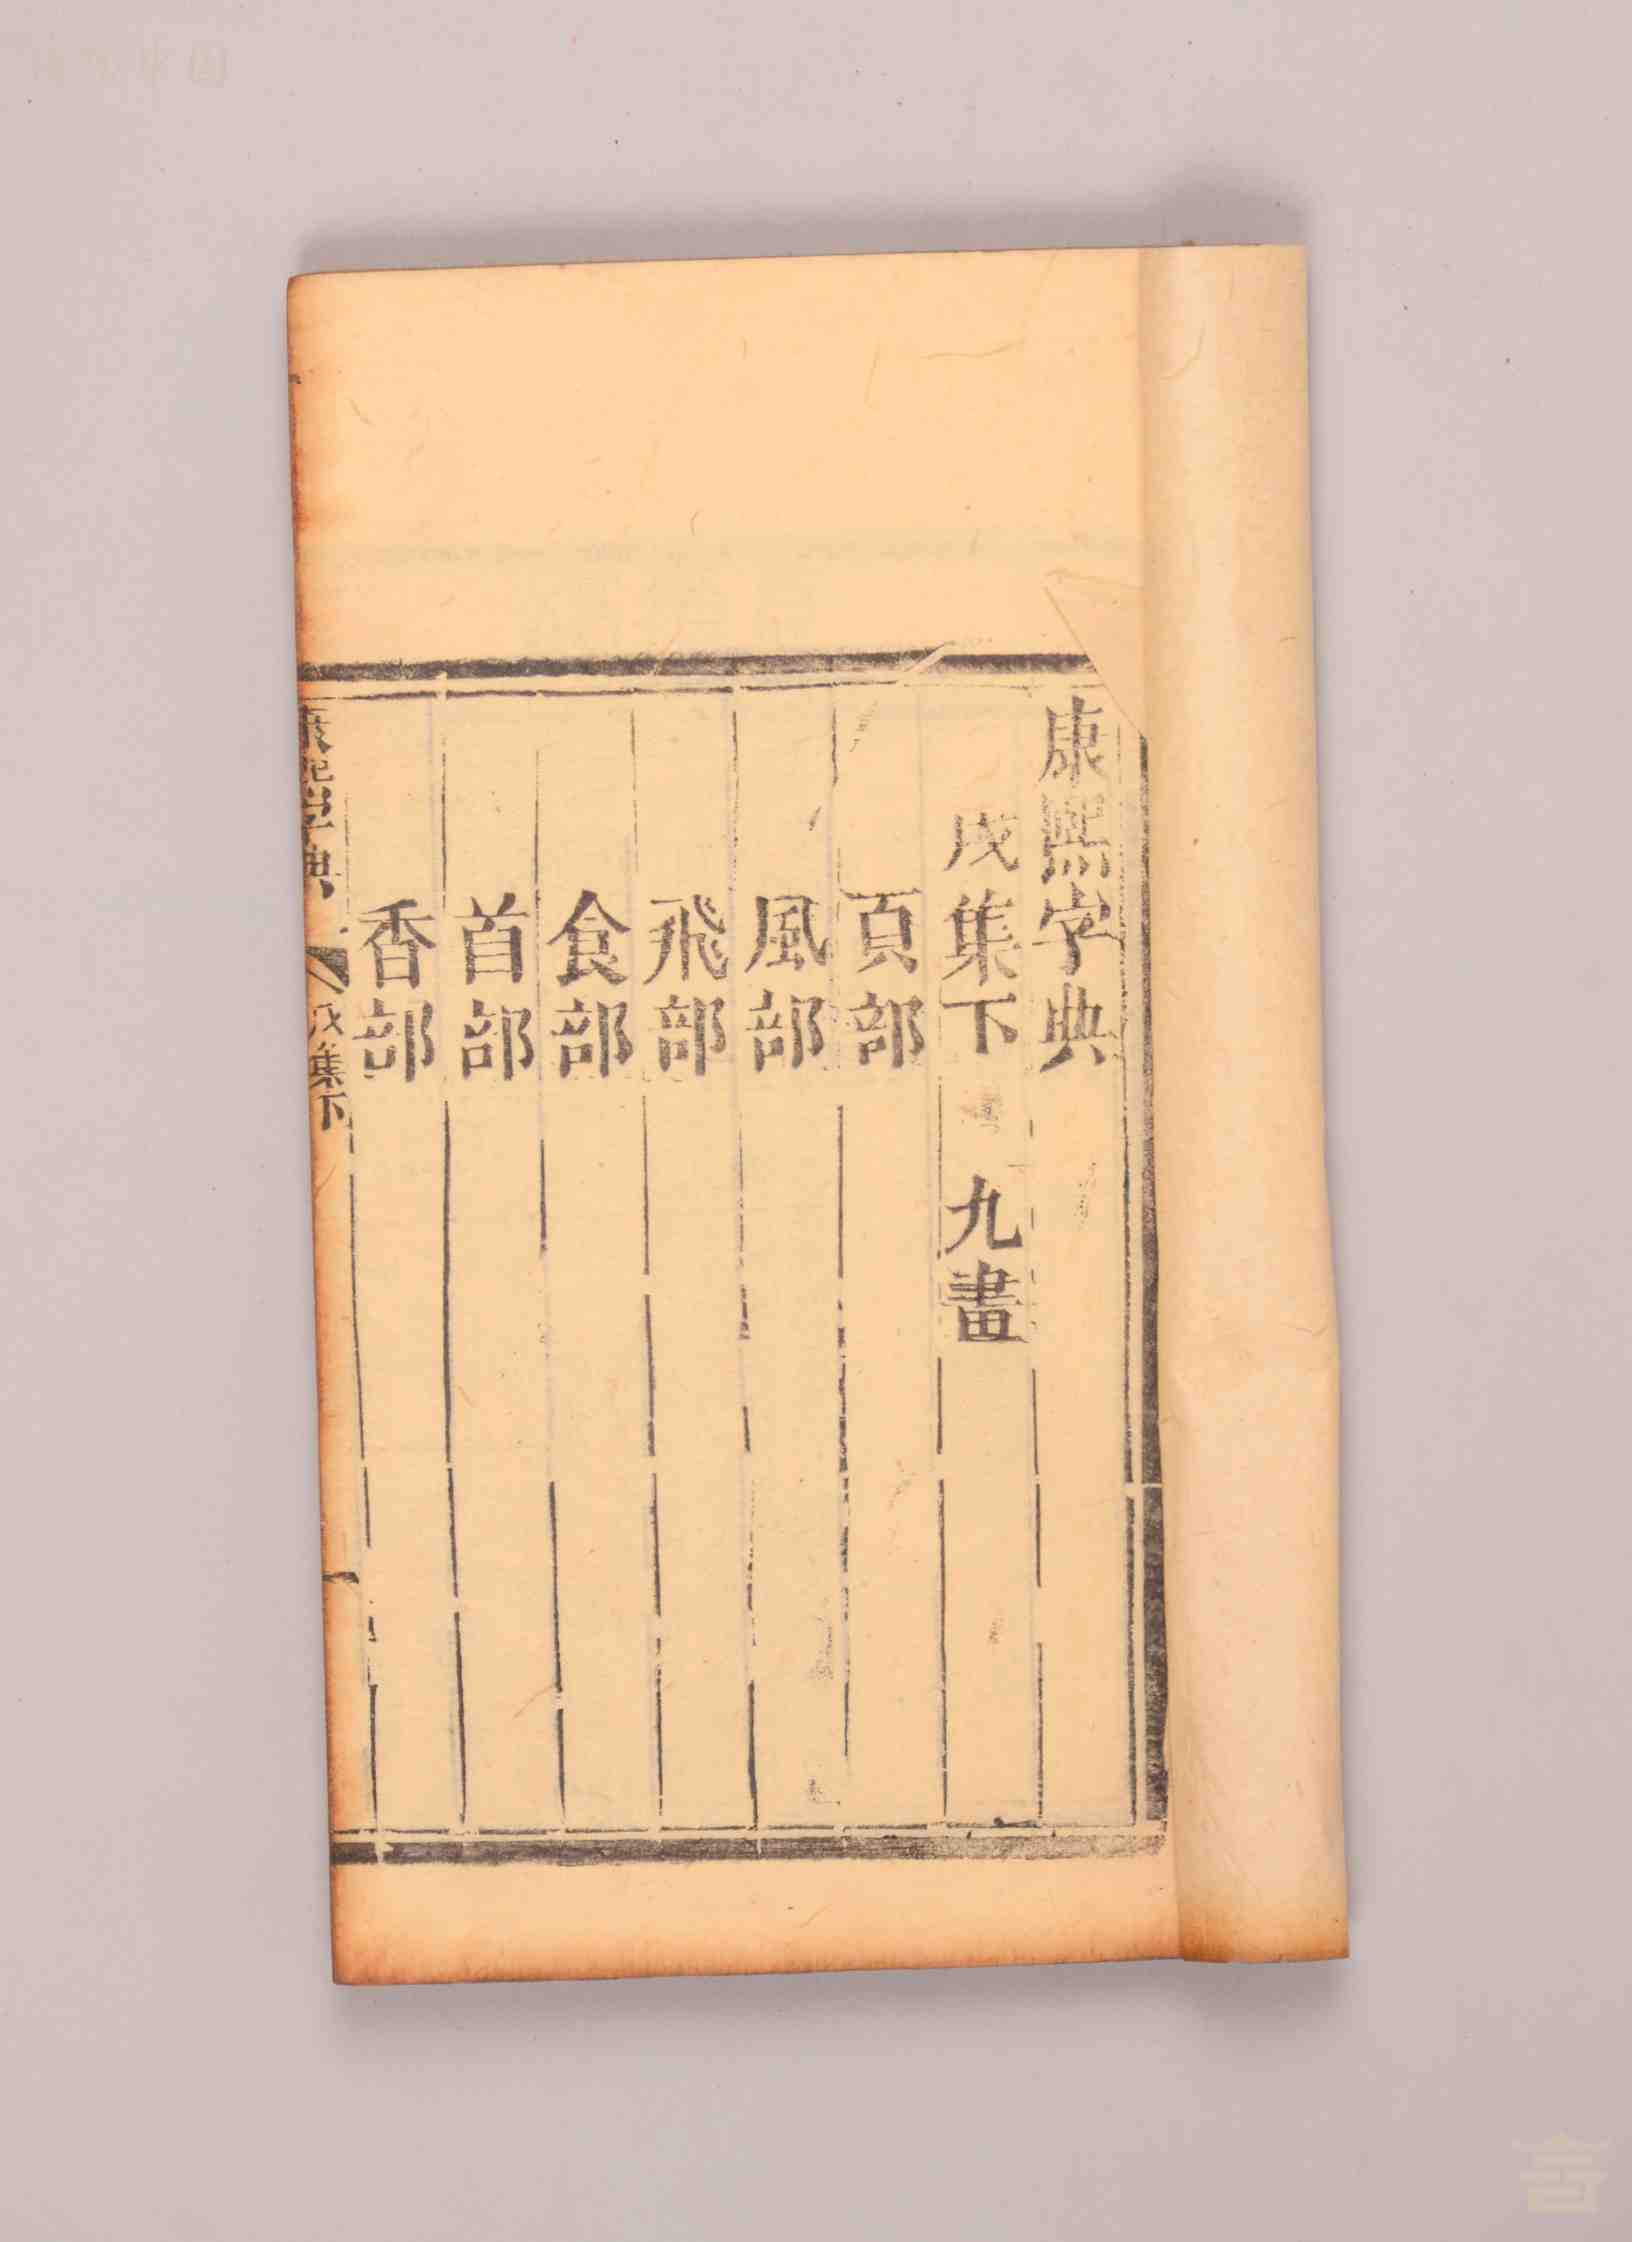 康熙字典
戌集下 九畫
頁部
風部
飛部
食部
首部
香部
康熙字典 戌集下 一